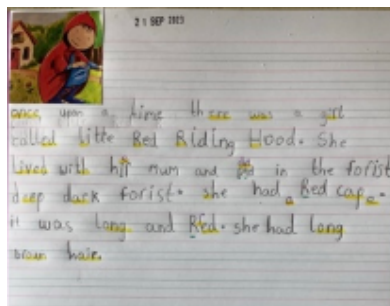 21 SEP 2023
once upon a time there was a girl
called little Red Riding Hood. She
lived with hir mum and in the forist
deep dark forist. she had a Red cape.
it was long and Red. she had long
brown hair.